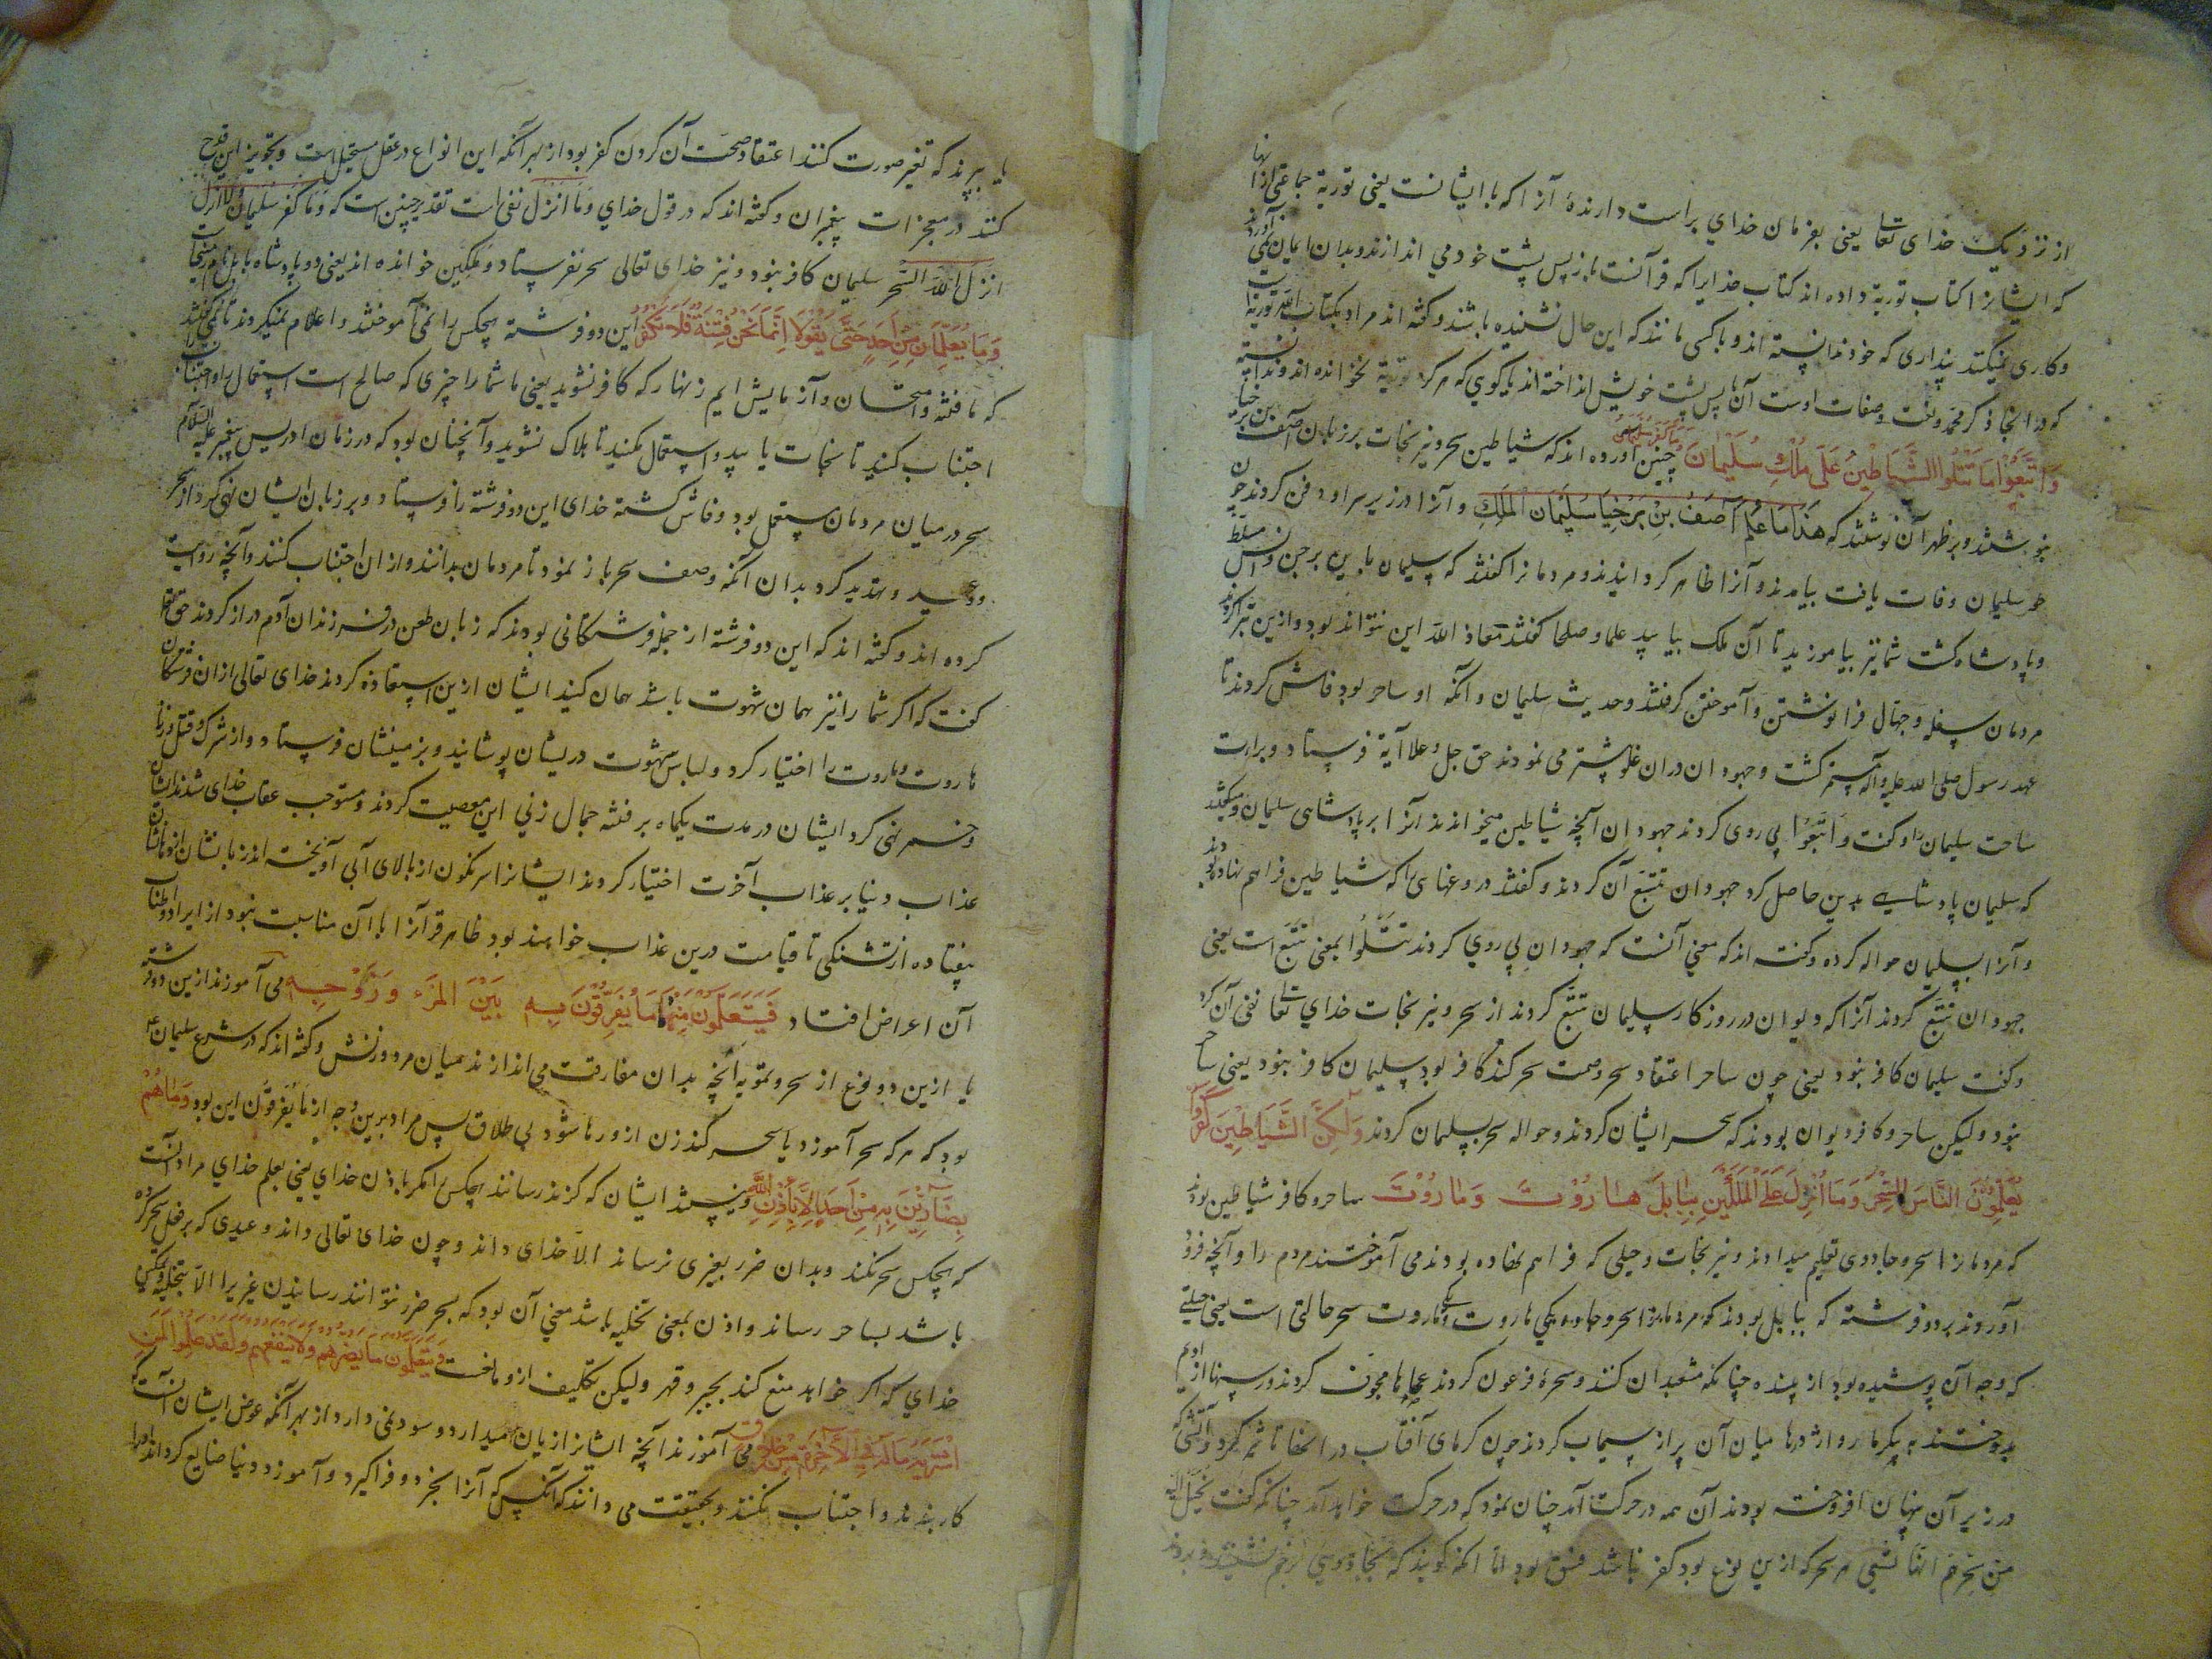 از نزدیک خدای تعالی یعنی بفرمان خدای براست دارندۀ آنرا که با ایشانست یعنی توریة جماعتی ازانها
که ایشانرا کتاب توریة داده اند کتاب خدایرا که قرآنست بازپس پشت خود می اندازند و بدان ایمان نمی آورند
وکاری نمیکنند پنداری که خود ندانسته اند و با کسی مانند که این حال نشنیده باشند و گفته اند مراد بکتاب الله توریة است
که در انجا ذکر محمد و نعت و صفات اوست آن را پس پشت خویش انداخته اند یا گویی که هرگز توریة نخوانده اند و ندانسته
وَاتَّبَعُوا مَا تَتْلُوا الشَّيَاطِينُ عَلَى مُلْكِ سُلَيْمَانَ وَمَا كَفَرَ سُلَيْمَانُ چنین آورده اند که شیاطین سحر و نیرنجات بر زبان آصف بن برخیا
بنوشتند و بر ظهر آن نوشتند که هَذَا مَا عَلَّمَ آصَفُ بْنُ بَرْخِيَا سُلَيْمَانَ الْمَلِكَ و آنرا در زیر سر او دفن کردند چون
سلیمان وفات یافت بیامدند و آنرا ظاهر کردانیدند و مردمانرا گفتند که سلیمان باین بر جن و انس مسلط
و پادشاه گشت شما نیز بیاموزید تا آن ملک بیابید علما و صلحا گفتند معاذ الله این نتواند بود و ازین تبرا کردند
مردمان سفله و جهال فرا نوشتن و آموختن گرفتند و حدیث سلیمان و آنکه او ساحر بود فاش کردند تا
عهد رسول صلی الله علیه وآله گشت و جهودان دران غلو بیشتر می نمودند حق جل و علا آیة فرستاد و براءت
ساحت سلیمان داد و گفت وَاتَّبَعُوا پی روی کردند جهودان آنچه شیاطین میخواندند آنرا بر پادشاهی سلیمان و میگفتند
که سلیمان پادشاهی بدین حاصل کرد جهودان تتبع آن کردند و گفتند دروغهای را که شیاطین فراهم نهاده بودند
و آنرا بسلیمان حواله کرده و گفته اند که معنی آنست که جهودان پی روی کردند تَتْلُوا بمعنی تتبع است یعنی
جهودان تتبع کردند آنرا که دیوان در روزگار سلیمان تتبع کردند از سحر و نیرنجات خدای تعالی نفی آن کرد
و گفت سلیمان کافر نبود یعنی چون ساحر اعتقاد سحر و صحت سحر کند کافر بود سلیمان کافر نبود یعنی ساحر
نبود ولیکن ساحر و کافر دیوان بودند که سحر ایشان کردند و حواله سحر بسلیمان کردند وَلَكِنَّ الشَّيَاطِينَ كَفَرُوا
يُعَلِّمُونَ النَّاسَ السِّحْرَ وَمَا أُنْزِلَ عَلَى الْمَلَكَيْنِ بِبَابِلَ هَارُوتَ وَمَارُوتَ ساحر و کافر شیاطین بودند
که مردمانرا سحر و جادوی تعلیم میدادند و نیرنجات و حیلی که فراهم نهاده بودند می آموختند مردم را و آنچه فرود
آوردند بر دو فرشته که ببابل بودند که مردمانرا سحر و جادو یکی هاروت و یکی ماروت سحر حالتی است یعنی حیلتی
که وجه آن پوشیده بود از بیننده چنانکه مشعبدان کنند و سحرۀ فرعون کردند عصاها مجوف کردند و رسنها از ادیم
بدوختند به پیکر مار و اژدرها میان آن پر از سیماب کردند چون گرمای آفتاب در انجا تاثیر کرد و آتشی که
در زیر آن پنهان افروخته بودند آن همه در حرکت آمد چنان نمود که در حرکت خواهد آمد چنانکه گفت یخیل الیه
من سحرهم انها تسعی هر سحر که ازین نوع بود کفر نباشد فسق بود اما آنکه گویند که
یا بپرند که تغیر صورت کنند اعتقاد صحت آن کردن کفر بود از بهر آنکه این انواع در عقل مستحیل است و تجویز این قدح
کند در معجزات پیغمبران و گفته اند که در قول خدای وَمَا أُنْزِلَ نفی است تقدیر چنین است که وَمَا كَفَرَ سُلَيْمَانُ وَلَا أَنْزَلَ
انزل الله السحر سلیمان کافر نبود و نیز خدای تعالی سحر نفرستاد و ملکین خوانده اند یعنی دو پادشاه بابل
وَمَا يُعَلِّمَانِ مِنْ أَحَدٍ حَتَّى يَقُولَا إِنَّمَا نَحْنُ فِتْنَةٌ فَلَا تَكْفُرْ این دو فرشته هیچکس را نمی آموختند و اعلام نمیکردند تا نمی گفتند
که ما فتنه و امتحان و آزمایش ایم زنهار که کافر نشوید یعنی ما شما را چیزی که صالح است استعمال را و اجتناب را
اجتناب کنید تا نجات یابید و استعمال نکنید تا هلاک نشوید و آنچنان بود که در زمان ادریس پیغمبر علیه السلام
سحر در میان مردمان مستعمل بود و فاش گشته خدای این دو فرشته را فرستاد و بر زبان ایشان نهی کرد از سحر
و وعید و تهدید کرد بدان آنگه وصف سحر باز نمود تا مردمان بدانند و از ان اجتناب کنند و آنچه روایت
کرده اند و گفته اند که این دو فرشته از جمله فرشتگانی بودند که زبان طعن در فرزندان آدم دراز کردند حق تعالی
گفت که اگر شما را نیز همان شهوت باشد همان کنید ایشان ازین استعاذه کردند خدای تعالی از ان فرشتگان
هاروت و ماروت را اختیار کرد و لباس شهوت دریشان پوشانید و بزمینشان فرستاد و از شرک و قتل و زنا
و خمر نهی کرد ایشان در مدت یکماه بر فتنه جمال زنی این معصیت کردند و مستوجب عقاب خدای شدند ایشان
عذاب دنیا بر عذاب آخرت اختیار کردند ایشانرا سرنگون از بالای آبی آویخته اند زبانشان از دهانشان
بیفتاده از تشنگی تا قیامت درین عذاب خواهند بود ظاهر قرآنرا با آن مناسبت نبود از ایراد و اطناب
آن اعراض افتاد فَيَتَعَلَّمُونَ مِنْهُمَا مَا يُفَرِّقُونَ بِهِ بَيْنَ الْمَرْءِ وَزَوْجِهِ می آموزند ازین دو فرشته
یا ازین دو نوع از سحر و تمویه آنچه بدان مفارقت می اندازند میان مرد و زنش و گفته اند که در شرع سلیمان
بود که هر که سحر آموزد یا سحر کند زن ازو رها شود بی طلاق پس مراد برین وجه از ما یفرقون این بود وَمَا هُمْ
بِضَارِّينَ بِهِ مِنْ أَحَدٍ إِلَّا بِإِذْنِ اللَّهِ و نیستند ایشان که گزند رسانند هیچکس را مگر باذن خدای یعنی بعلم خدای مراد آنست
که هیچکس سحر نکند و بدان ضرر بغیری نرساند الا خدای داند و چون خدای تعالی داند وعیدی که بر فعل سحر کرده
باشد بساحر رساند و اذن بمعنی تخلیه باشد معنی آن بود که بسحر ضرر نتوانند رسانیدن غیریرا الا بتخلیه و تمکین
خدای که اگر خواهد منع کند بجبر و قهر ولیکن تکلیف ازو مانعست وَيَتَعَلَّمُونَ مَا يَضُرُّهُمْ وَلَا يَنْفَعُهُمْ وَلَقَدْ عَلِمُوا لَمَنِ
اشْتَرَاهُ مَا لَهُ فِي الْآخِرَةِ مِنْ خَلَاقٍ می آموزند آنچه ایشانرا زیان میدارد و سود نمی دارد از بهر آنکه عوض ایشان آنست که
کار بندند و اجتناب نکنند و بحقیقت می دانند که آنکس که آنرا بخرد و فراگیرد و آموزد دنیا ضایع کرداند او را